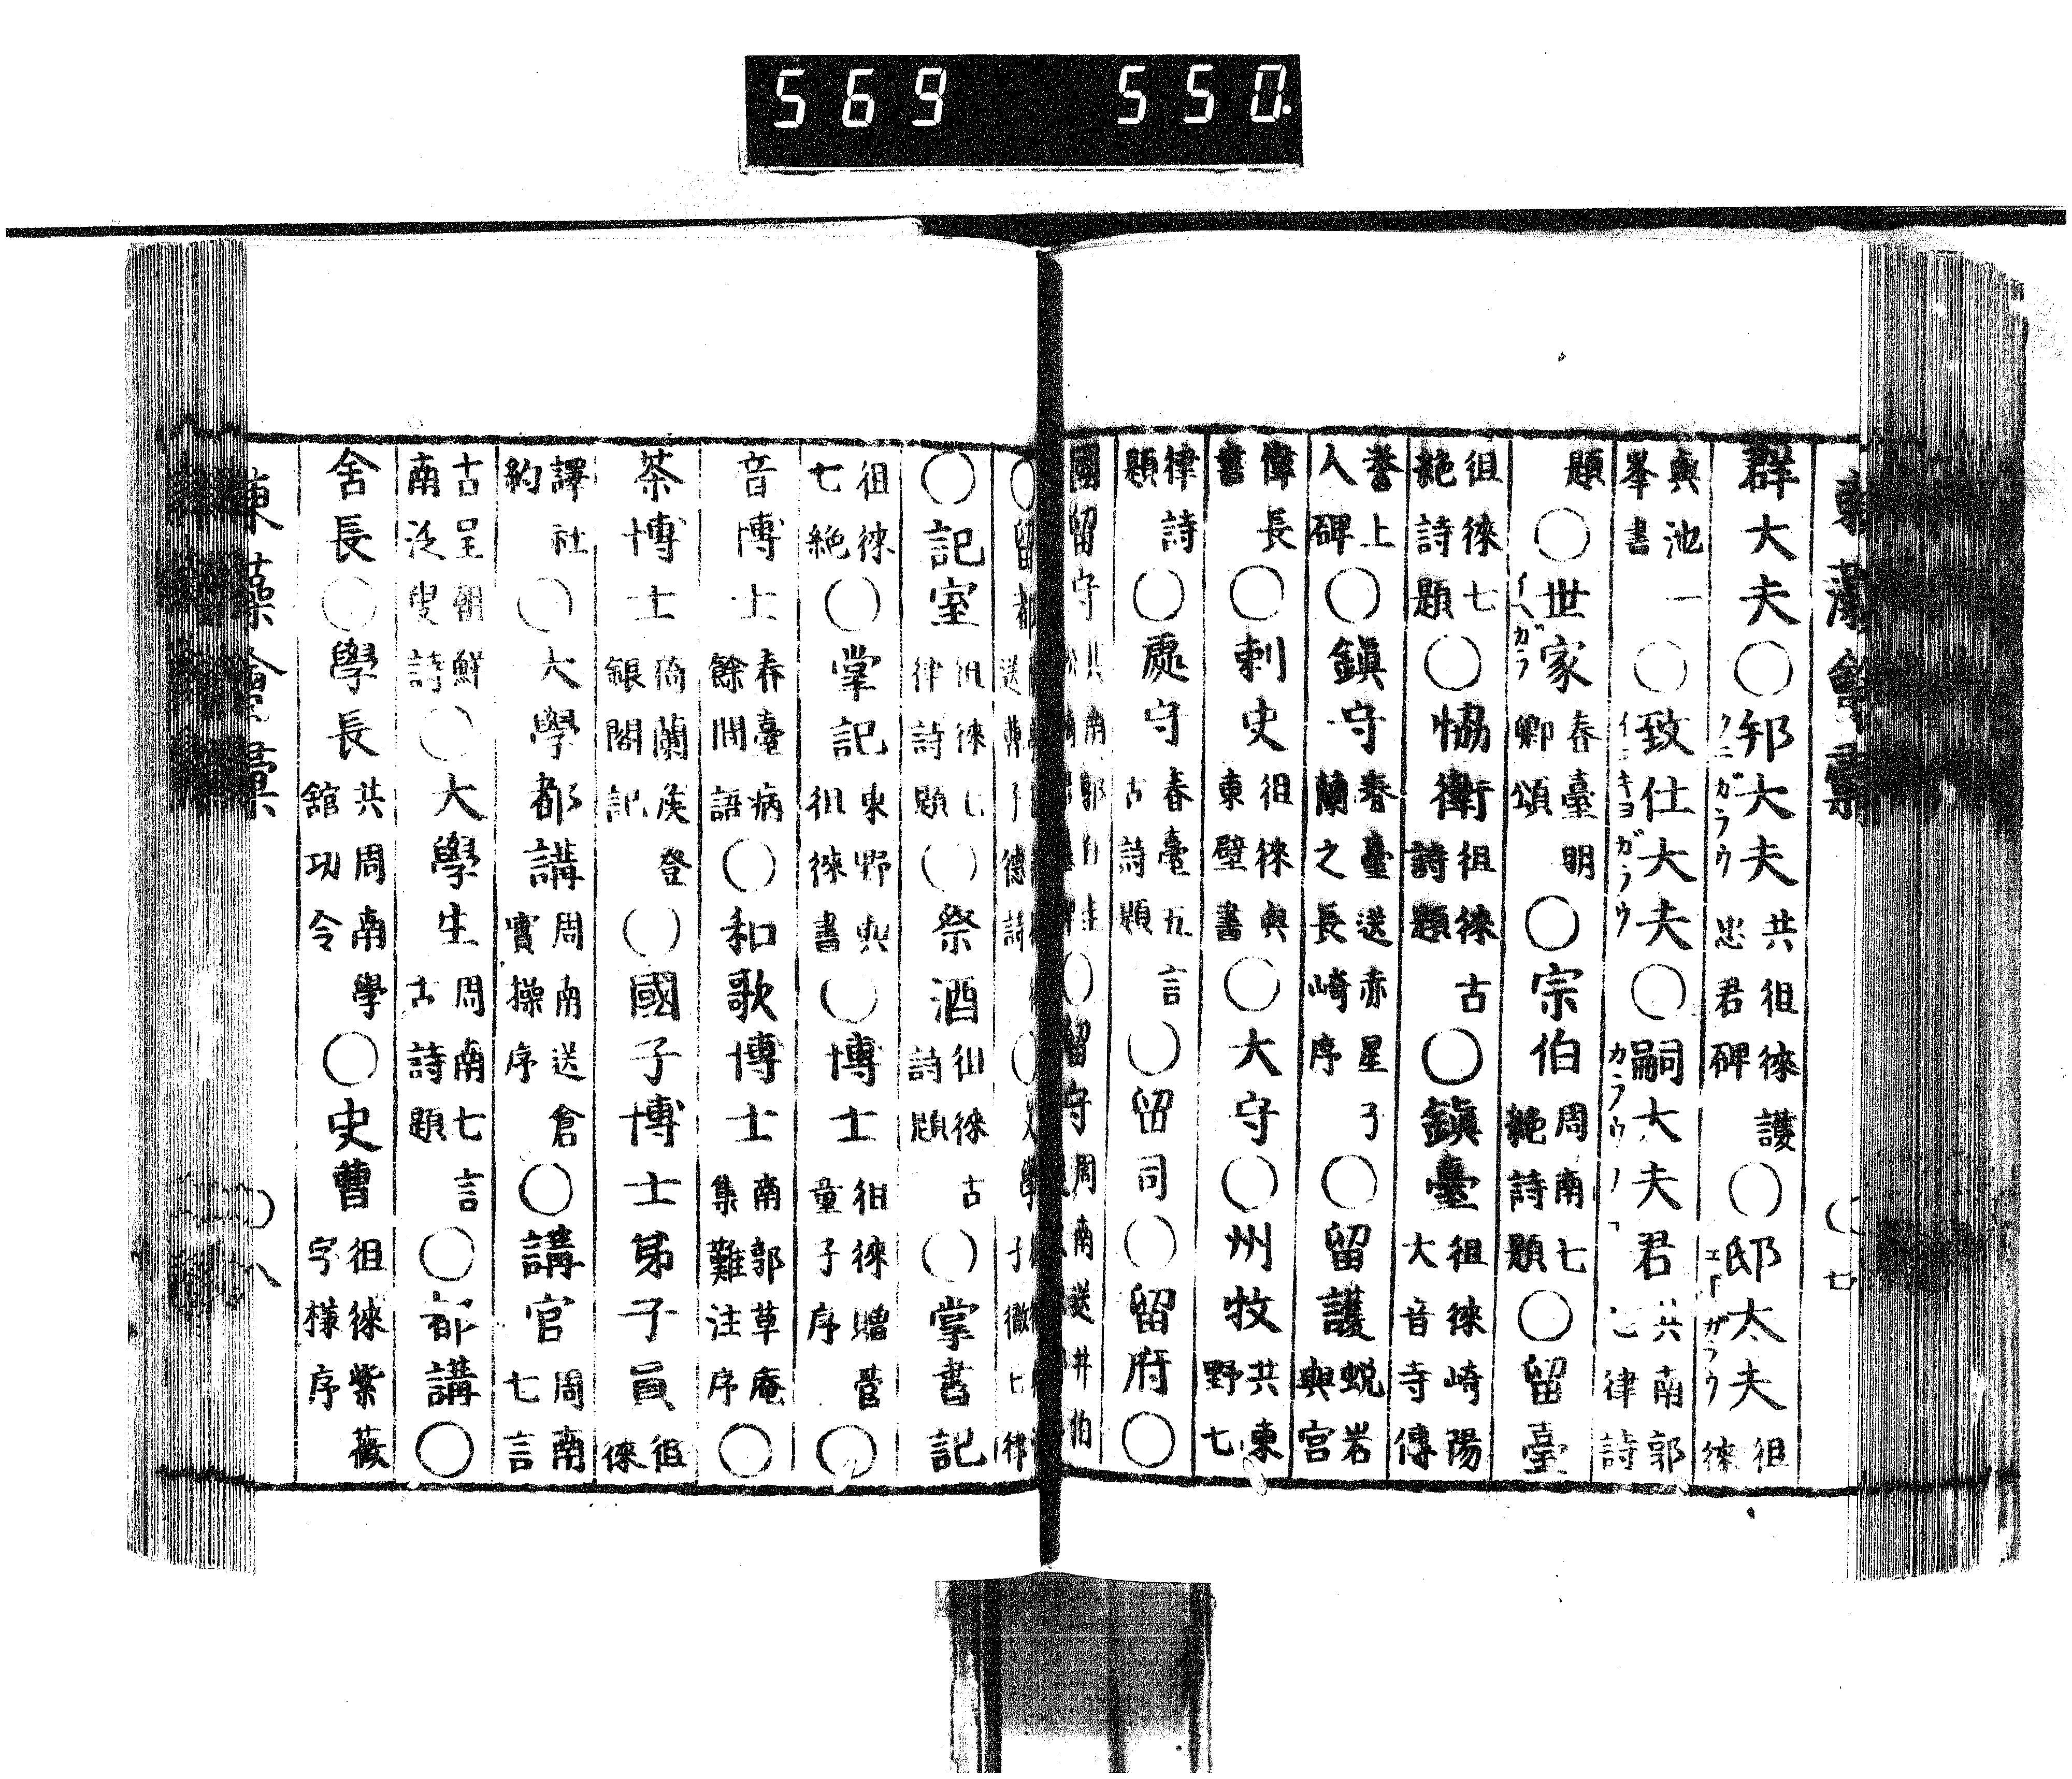 569 550.
群大夫○㺬大夫 共徂徠護忠君碑 ○邸太夫 徂徠
與池一峯書 ○致仕大夫○嗣大夫君 共南郭七律詩
題○世家 春臺明卿頌 ○宗伯 周南七絶詩題 ○留臺
徂徠七絶詩題 ○協衛 徂徠古詩題 ○鎮臺 徂徠崎陽大音寺傳
譽上人碑 ○鎮守 春臺送赤星蘭之長崎序 ○留護 蛻岩與宮
傳長書 ○刺史 徂徠與東壁書 ○大守○州牧 共東野七
律詩題 ○處守 春臺五言古詩題 ○留司○留府○
國留守 ○留守 周南送井伯
○留都
○記室 徂徠七律詩題 ○祭酒 徂徠古詩題 ○掌書記
徂徠七絶 ○掌記 東野與徂徠書 ○博士 徂徠贈菅童子序 ○
音博士 春臺病餘間語 ○和歌博士 南郭草庵集難注序 ○
茶博士 倚蘭侯登銀閣記 ○國子博士弟子員 徂徠
譯社約 ○大學都講 周南送倉實操序 ○講官 周南七言
古呈朝鮮南泛叟詩 ○大學生 周南七言古詩題 ○都講○
舍長○學長 共周南學館功令 ○史曹 徂徠紫薇字樣序
東藻會彙 八